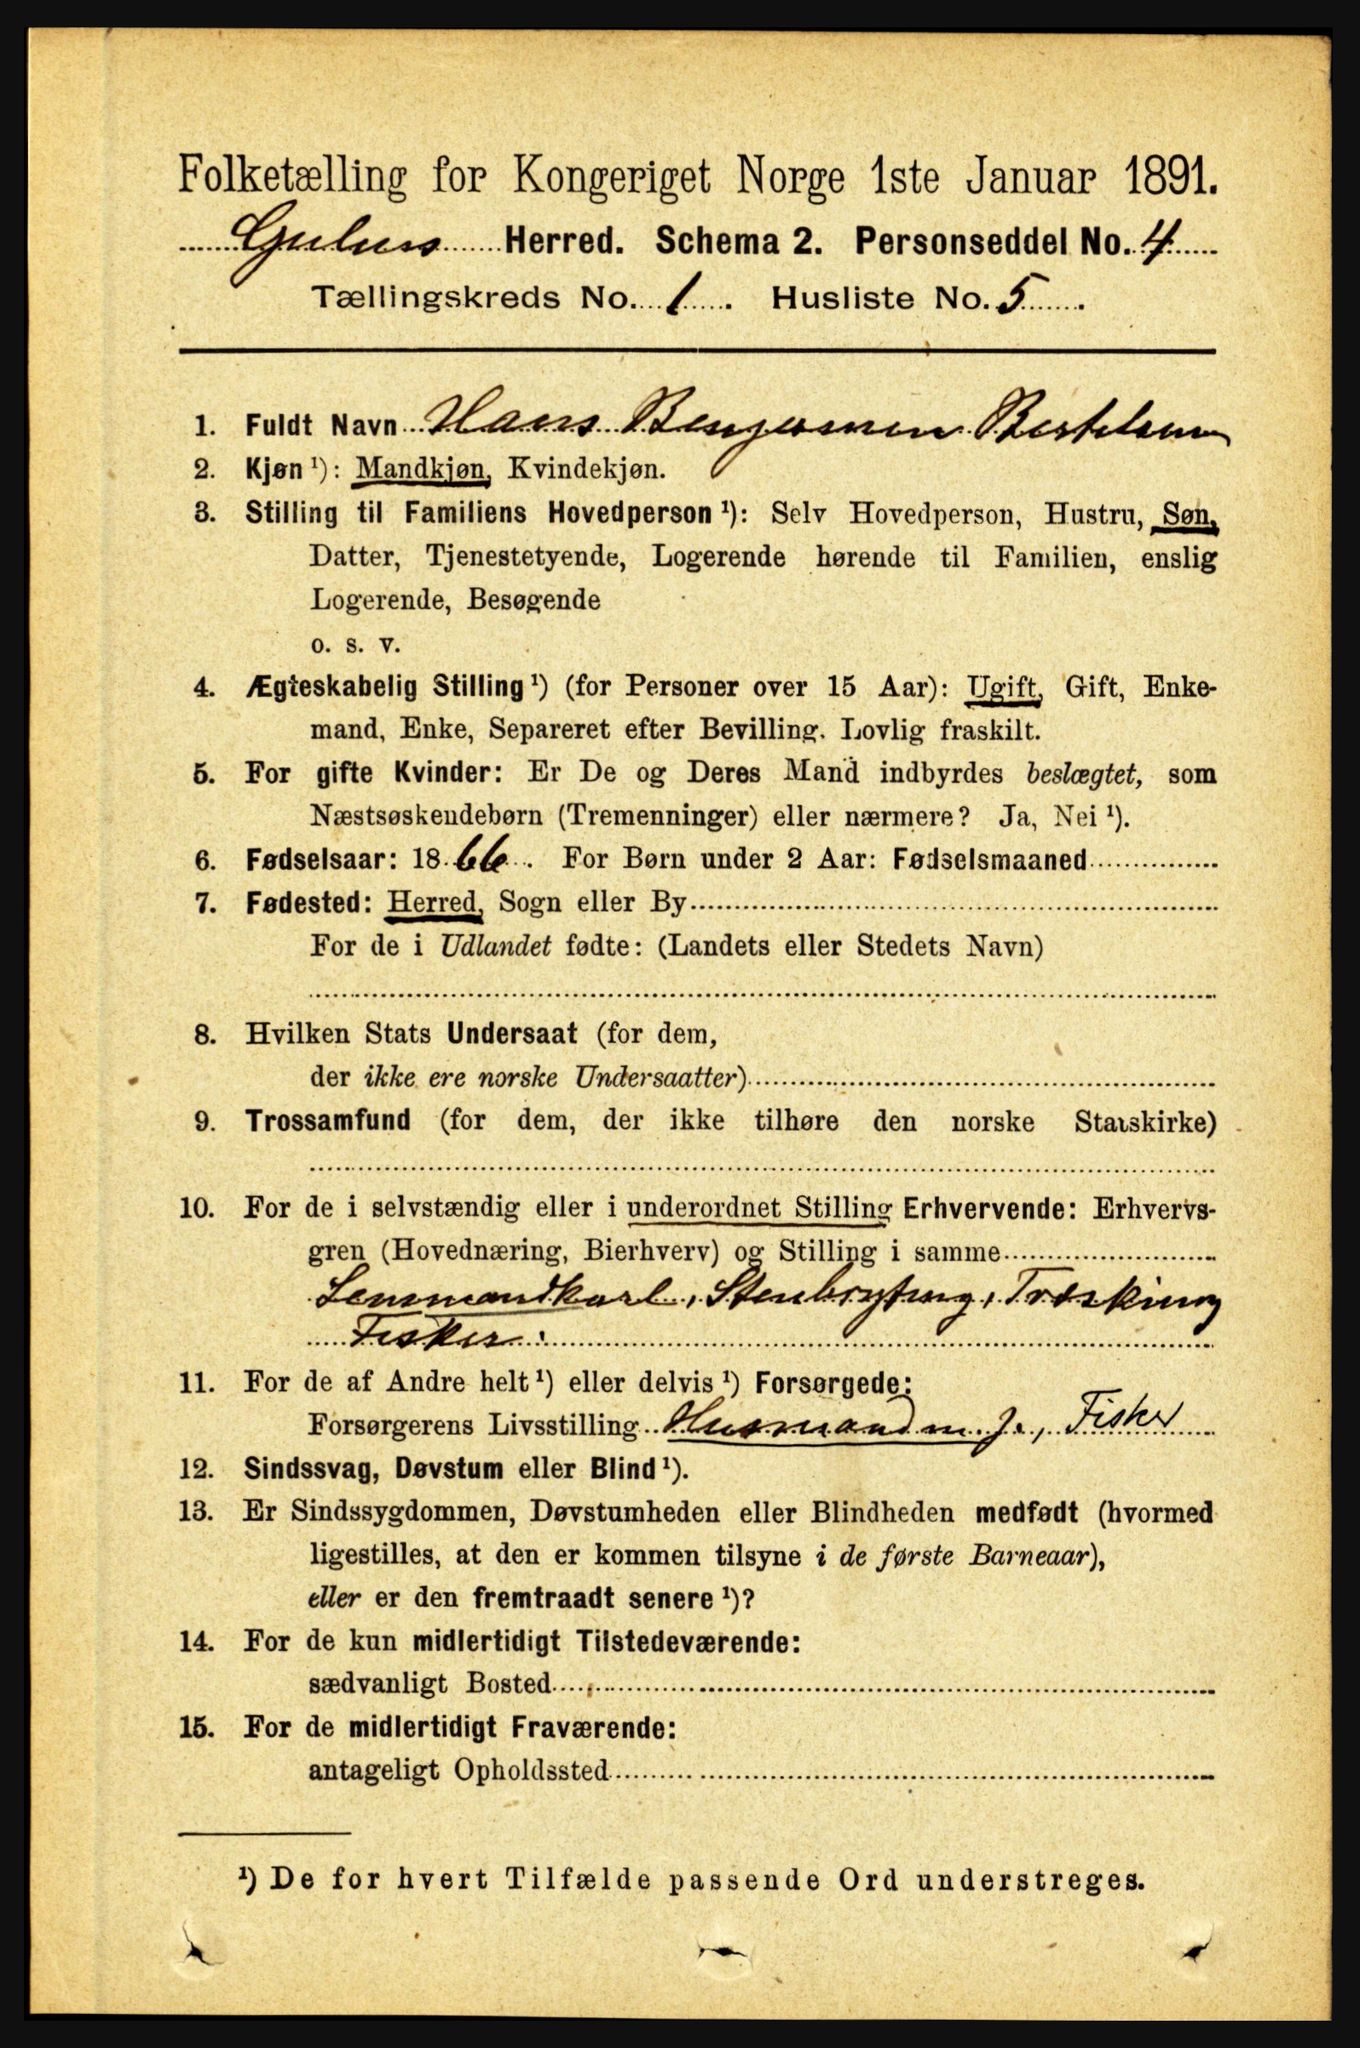 Folketælling for Kongeriget Norge 1ste Januar 1891.
Gulen Herred. Schema 2. Personseddel No. 4
Tællingskreds No. 1. Husliste No. 5.
1. Fuldt Navn Hans Benjamin Bertelsen
2. Kjøn ¹): Mandkjøn, Kvindekjøn.
3. Stilling til Familiens Hovedperson ¹): Selv Hovedperson, Hustru, Søn,
Datter, Tjenestetyende, Logerende hørende til Familien, enslig
Logerende, Besøgende
o. s. v.
4. Ægteskabelig Stilling ¹) (for Personer over 15 Aar): Ugift, Gift, Enke-
mand, Enke, Separeret efter Bevilling. Lovlig fraskilt.
5. For gifte Kvinder: Er De og Deres Mand indbyrdes beslægtet, som
Næstsøskendebørn (Tremenninger) eller nærmere? Ja, Nei ¹).
6. Fødselsaar: 1866. For Børn under 2 Aar: Fødselsmaaned
7. Fødested: Herred, Sogn eller By
For de i Udlandet fødte: (Landets eller Stedets Navn)
8. Hvilken Stats Undersaat (for dem,
der ikke ere norske Undersaatter)
9. Trossamfund (for dem, der ikke tilhøre den norske Statskirke)
10. For de i selvstændig eller i underordnet Stilling Erhvervende: Erhvervs-
gren (Hovednæring, Bierhverv) og Stilling i samme
Fisker.
11. For de af Andre helt ¹) eller delvis ¹) Forsørgede:
Forsørgerens Livsstilling Husmand m. J., Fisker
12. Sindssvag, Døvstum eller Blind ¹).
13. Er Sindssygdommen, Døvstumheden eller Blindheden medfødt (hvormed
ligestilles, at den er kommen tilsyne i de første Barneaar),
eller er den fremtraadt senere ¹)?
14. For de kun midlertidigt Tilstedeværende:
sædvanligt Bosted
15. For de midlertidigt Fraværende:
antageligt Opholdssted
¹) De for hvert Tilfælde passende Ord understreges.